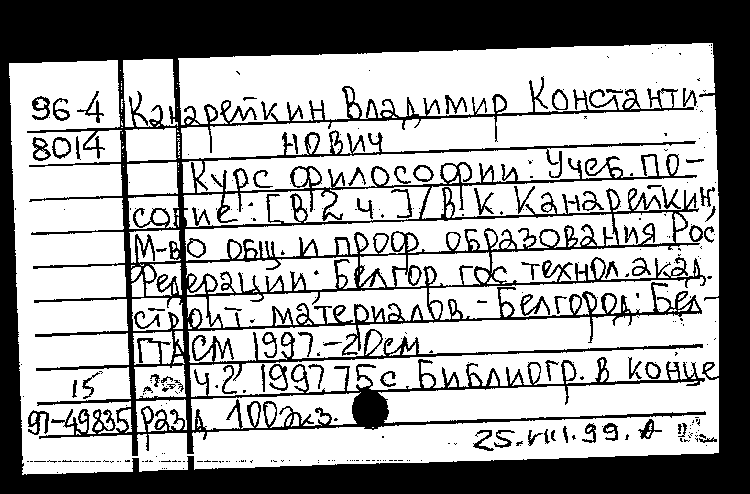 96-4 Канарейкин, Владимир Константи-
8014 нович
Курс философии: Учеб. по-
собие: [В 2 ч.] / В. К. Канарейкин;
М-во общ. и проф. образования Рос.
Федерации; Белгор. гос. технол. акад.
строит. материалов. - Белгород: Бел-
ГТАСМ 1997. - 20 см.
15 Ч. 2. 1997. 75 с. Библиогр. в конце
97-49835 разд. 100 экз.
25.VIII.99.